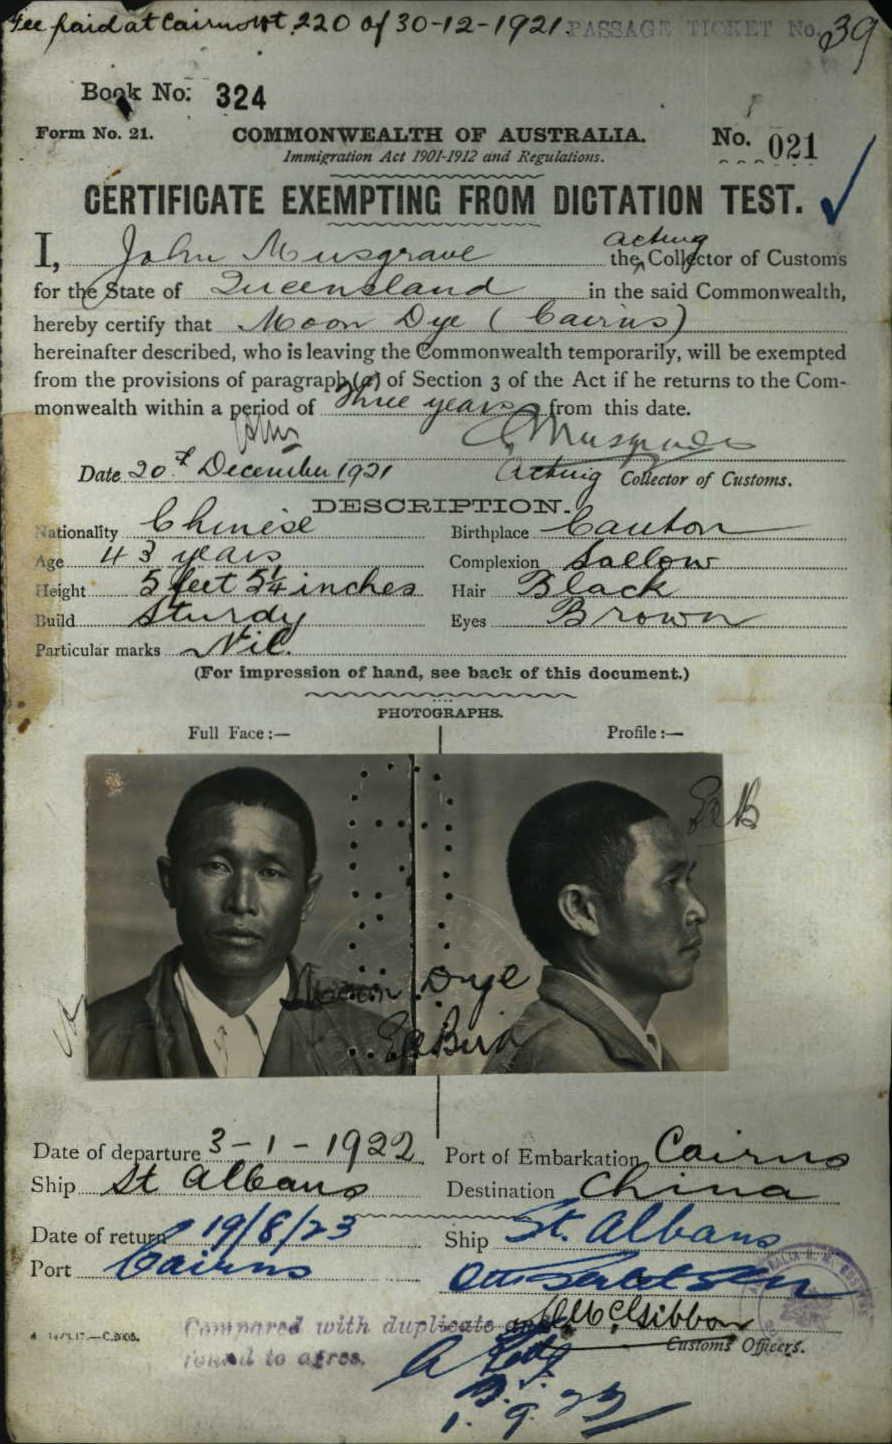 Fee paid at Cairns 220 of 30-12-1921. PASSAGE TICKET No. 39
Book No: 324
Form No. 21. COMMONWEALTH OF AUSTRALIA. No. 021
Immigration Act 1901-1912 and Regulations.
CERTIFICATE EXEMPTING FROM DICTATION TEST.
I, John Musgrave the acting Collector of Customs
for the State of Queensland in the said Commonwealth,
hereby certify that Moon Dye (Cairns)
hereinafter described, who is leaving the Commonwealth temporarily, will be exempted
from the provisions of paragraph (a) of Section 3 of the Act if he returns to the Com-
monwealth within a period of three years from this date.
Musgrave
Date 20th December 1921 Acting Collector of Customs.
DESCRIPTION.
Nationality Chinese Birthplace Canton
Age 43 years Complexion Sallow
Height 5 feet 5¼ inches Hair Black
Build Sturdy Eyes Brown
Particular marks Nil.
(For impression of hand, see back of this document.)
PHOTOGRAPHS.
Full Face :— Profile :—
Moon Dye
Date of departure 3-1-1922 Port of Embarkation Cairns
Ship St Albans Destination China
Date of return 19/8/23 Ship St. Albans
Port Cairns
McGibbon
Compared with duplicate and
found to agree.
Customs Officers.
1.9.23